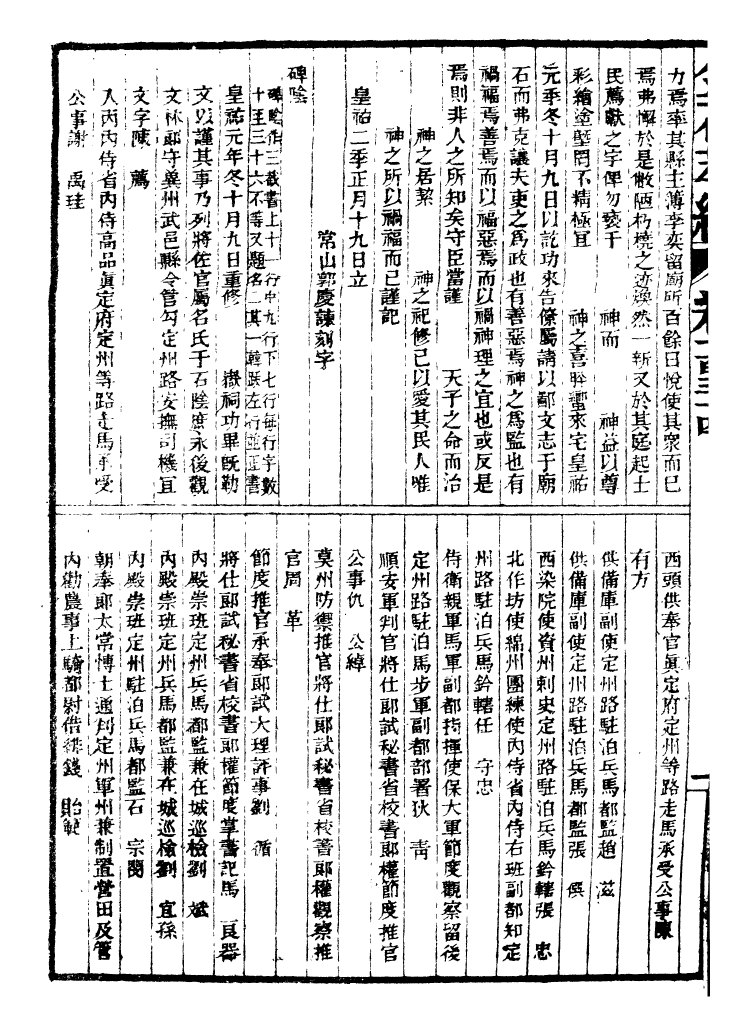 力焉率其縣主簿李奕留廟所百餘日悅使其衆而已
焉弗懈於是敝陋朽橈之迹煥然一新又於其庭起土
民薦獻之字俾勿褻于　神而　神益以尊
彩繪塗墍罔不精極宜　神之喜肸蠁來宅皇祐
元季冬十月九日以訖功來告僚屬請以鄙文志于廟
石而弗克讓夫吏之為政也有善惡焉神之為監也有
禍福焉善焉而以福惡焉而以禍神理之宜也或反是
焉則非人之所知矣守臣當謹　天子之命而治
神之居絜　神之祀修己以愛其民人唯
神之所以禍福而已謹記
皇祐二季正月十九日立
常山郭慶諫刻字
碑陰
碑陰作三截書上十一行中九行下七行每行字數
十至三十六不等又題名二其一韓跋左行並正書
皇祐元年冬十月九日重修　嶽祠功畢旣勒
文以謹其事乃列將佐官屬名氏于石陰庶永後觀
文林郎守冀州武邑縣令管勾定州路安撫司機宜
文字陳　薦
入內內侍省內侍高品眞定府定州等路走馬承受
公事謝　禹珪
西頭供奉官眞定府定州等路走馬承受公事陳
有方
供備庫副使定州路駐泊兵馬都監趙　滋
供備庫副使定州路駐泊兵馬都監張　俁
西染院使資州刺史定州路駐泊兵馬鈐轄張　忠
北作坊使綿州團練使內侍省內侍右班副都知定
州路駐泊兵馬鈐轄任　守忠
侍衛親軍馬軍副都指揮使保大軍節度觀察留後
定州路駐泊馬步軍副都部署狄　青
順安軍判官將仕郎試秘書省校書郎權節度推官
公事仇　公綽
莫州防禦推官將仕郎試秘書省校書郎權觀察推
官周　革
節度推官承奉郎試大理評事劉　循
將仕郎試秘書省校書郎權節度掌書記馬　良器
內殿崇班定州兵馬都監兼在城巡檢劉　斌
內殿崇班定州兵馬都監兼在城巡檢劉　宜孫
內殿崇班定州駐泊兵馬都監石　宗閔
朝奉郎太常博士通判定州軍州兼制置營田及管
內勸農事上騎都尉借緋錢　貽範